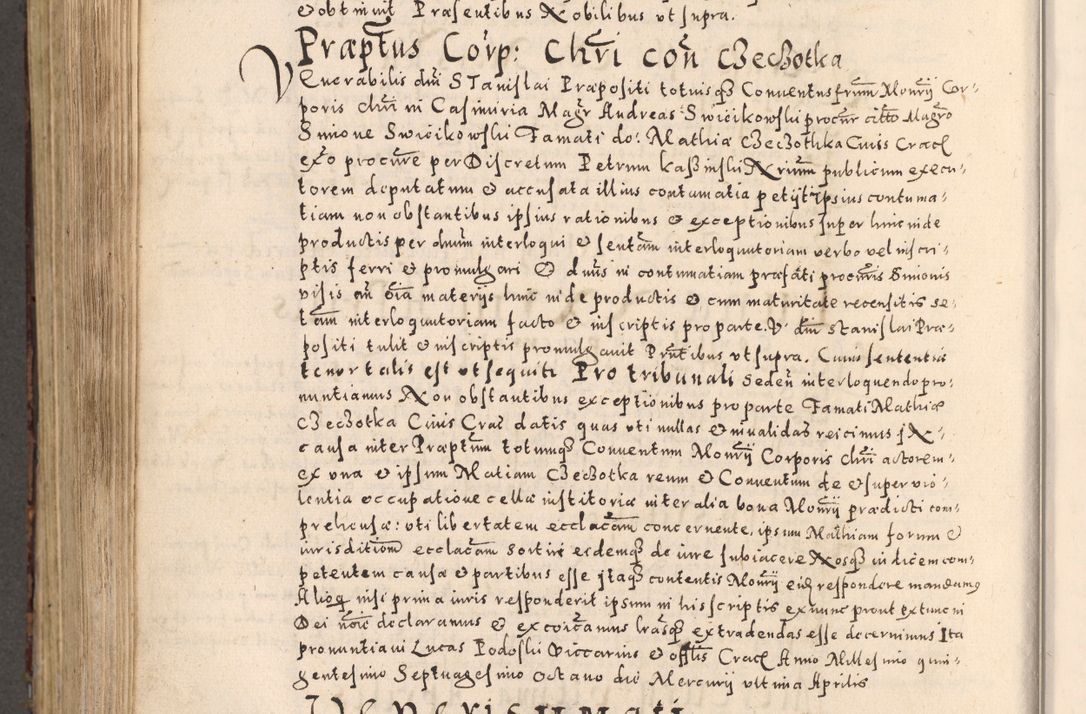 & obtinuit Præsentibus Nobilibus ut supra.
Præptus Corp: Chri con Czeczotka
Venerabilis dni STanislai Præpositi totiusq Conventus frum Monrij Cor-
poris chri in Casimiria Magr Andreas Swieikowski procur citto Magro
Simone Swieikowski Famati do: Mathiæ Czeczothka Civis Crac
exo procure per Discretum Petrum kaszinski Nrium publicum execu-
torem deputatum & accusata illius contumatia petijt ipsius contuma-
tiam non obstantibus ipsius rationibus & exceptionibus super hinc inde
productis per dnum interloqui & sentam interloquutoriam verbo vel in scri-
ptis ferri & promulgari & dnus in contumatiam præfati procuris Simonis
visis cum oia materijs hinc inde productis & cum maturitate recensitis se-
tam interloquutoriam facto & in scriptis pro parte V. dni Stanislai Præ-
positi tulit & in scriptis promulgavit Prntibus ut supra. Cuius sententiæ
tenor talis est ut sequitr Pro tribunali seden interloquendo pro-
nuntiamus Non obstantibus exceptionibus pro parte Famati Mathiæ
Czeczotka Civis Crac datis quas uti nullas & invalidas reicimus IN-
causa inter Præptum totumq Conventum Monrij Corporis chri actorem
ex una & ipsum Matiam Czeczotka reum & Conventum de & super vio-
lentia occupatione cellæ institoriæ inter alia bona Monrij prædicti com-
prehensæ: uti libertatem ecclacam concernente, ipsum Mathiam forum &
iurisditiom ecclacam sortiri eidemq de iure subiacere Nosq iudicem com-
petentem causæ & partibus esse itaq contentis Monrij eiq respondere mandamq
Alioq nisi prima iuris responderit ipsum in his scriptis ex nunc prout ex tunc in
Dei noie declaramus & excoicamus lrasq extradendas esse decernimus Ita
pronuntiavi Lucas Podoski Viccarius & offlis Crac Anno Millesimo quin-
gentesimo Septuagesimo octavo die Mercurij ultima Aprilis